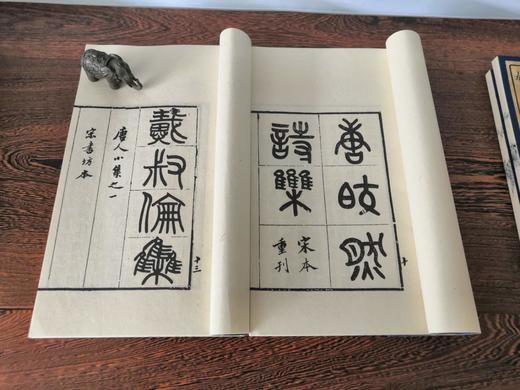 唐皎然
詩集
宋本
重刊
十
戴叔倫集
唐人小集之一
宋書坊本
十三